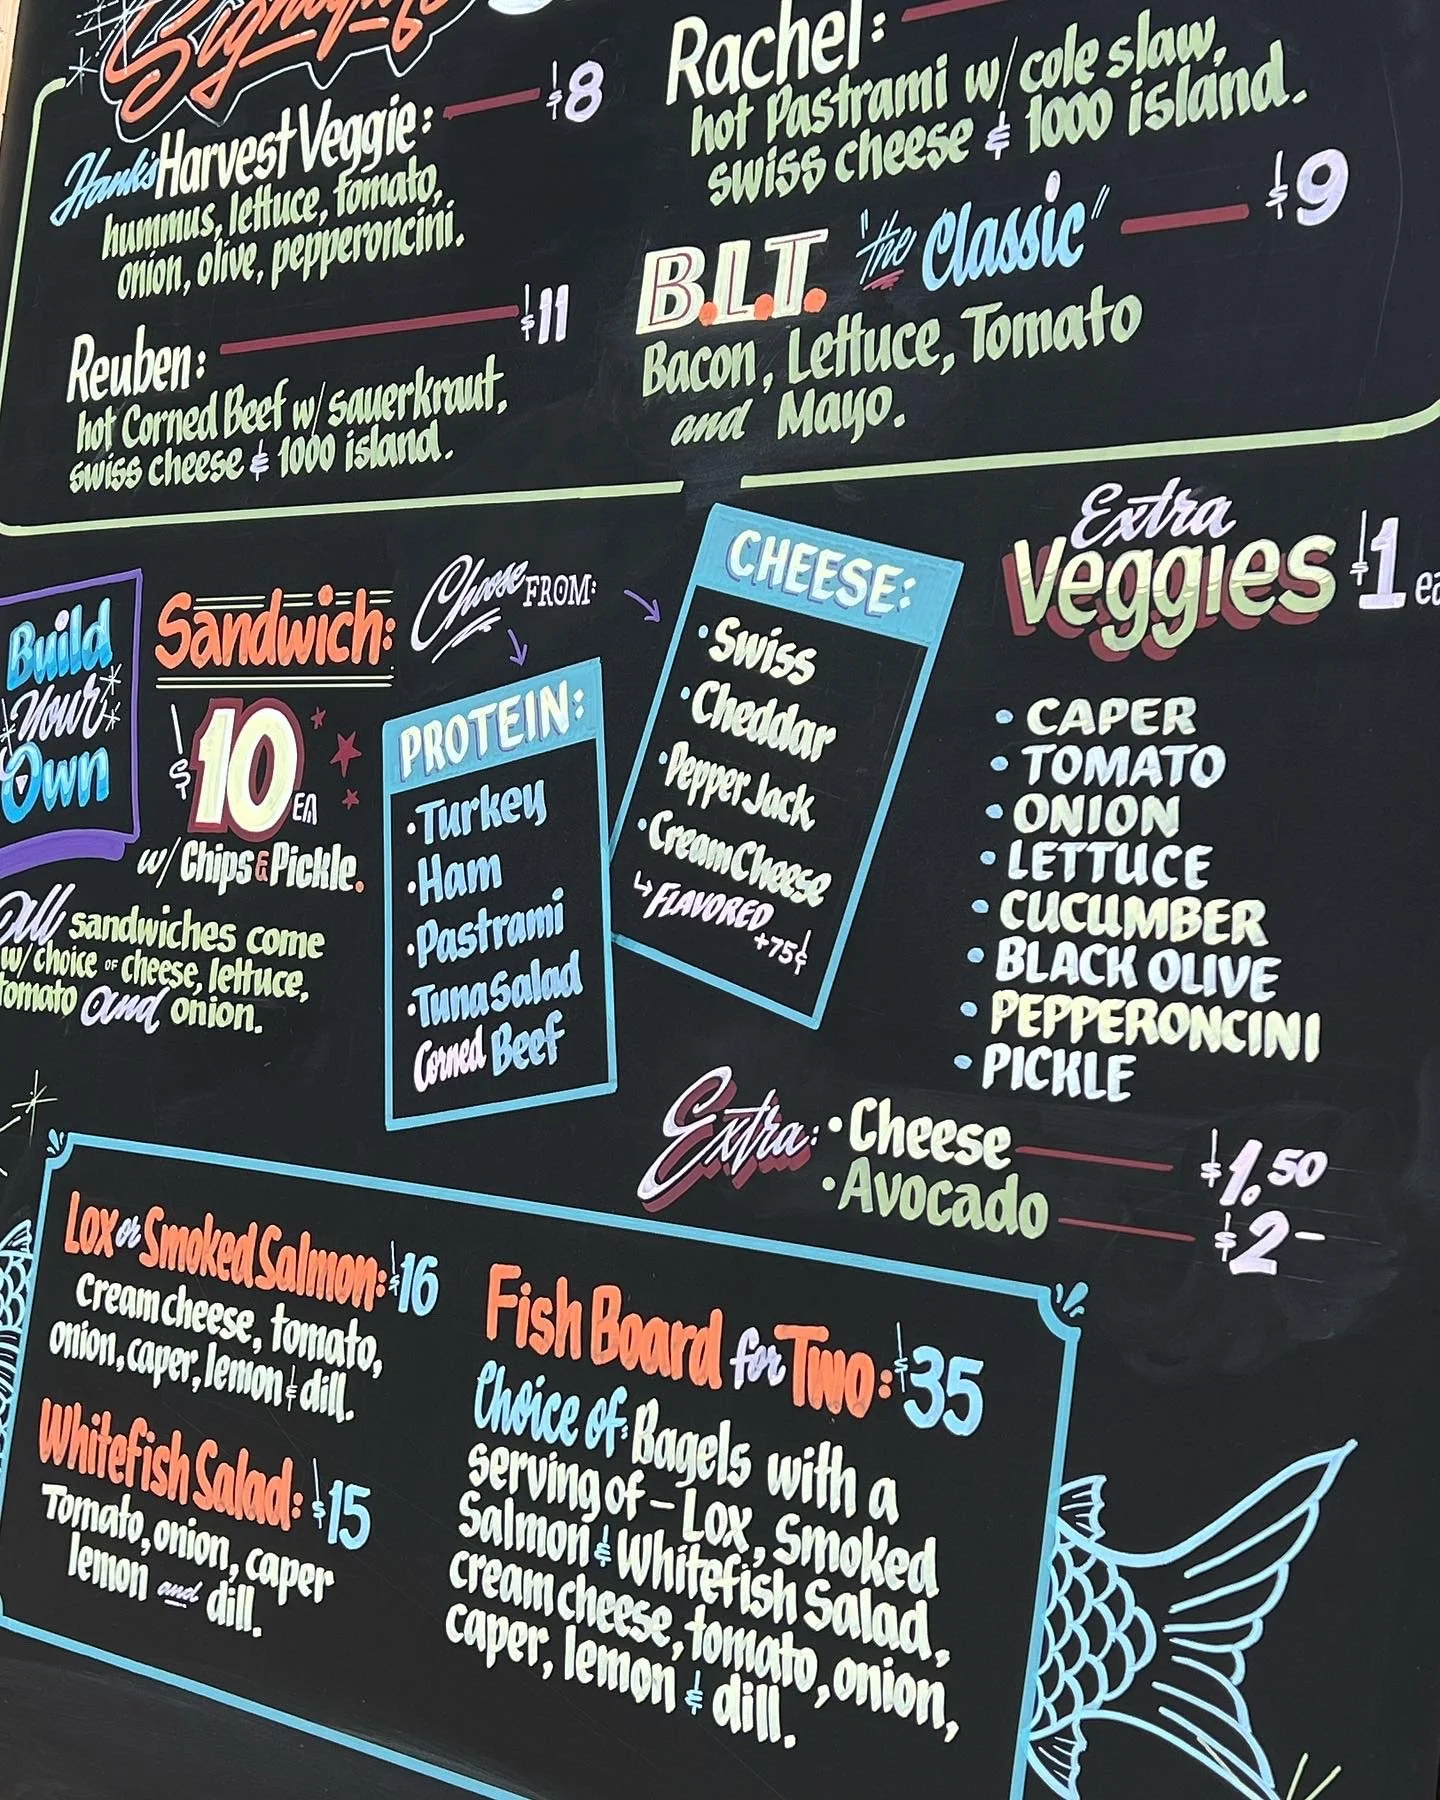 Signature
Hank's Harvest Veggie: $8
hummus, lettuce, tomato,
onion, olive, pepperoncini.
Reuben: $11
hot Corned Beef w/ sauerkraut,
swiss cheese & 1000 island.
Rachel:
hot Pastrami w/ cole slaw,
swiss cheese & 1000 island.
B.L.T. "the Classic" $9
Bacon, Lettuce, Tomato
and Mayo.
Build
Your
Own
Sandwich:
$10 EA
w/ Chips & Pickle.
All sandwiches come
w/ choice of cheese, lettuce,
tomato and onion.
Choose FROM:
PROTEIN:
• Turkey
• Ham
• Pastrami
• Tuna Salad
Corned Beef
CHEESE:
• Swiss
• Cheddar
• Pepper Jack
• Cream Cheese
↳ FLAVORED
+75¢
Extra
Veggies $1 ea
• CAPER
• TOMATO
• ONION
• LETTUCE
• CUCUMBER
• BLACK OLIVE
• PEPPERONCINI
• PICKLE
Extra: • Cheese $1.50
• Avocado $2-
Lox or Smoked Salmon: $16
Cream cheese, tomato,
onion, caper, lemon & dill.
Whitefish Salad: $15
Tomato, onion, caper
lemon and dill.
Fish Board for Two: $35
Choice of: Bagels with a
serving of - Lox, Smoked
Salmon & Whitefish Salad,
cream cheese, tomato, onion,
caper, lemon & dill.